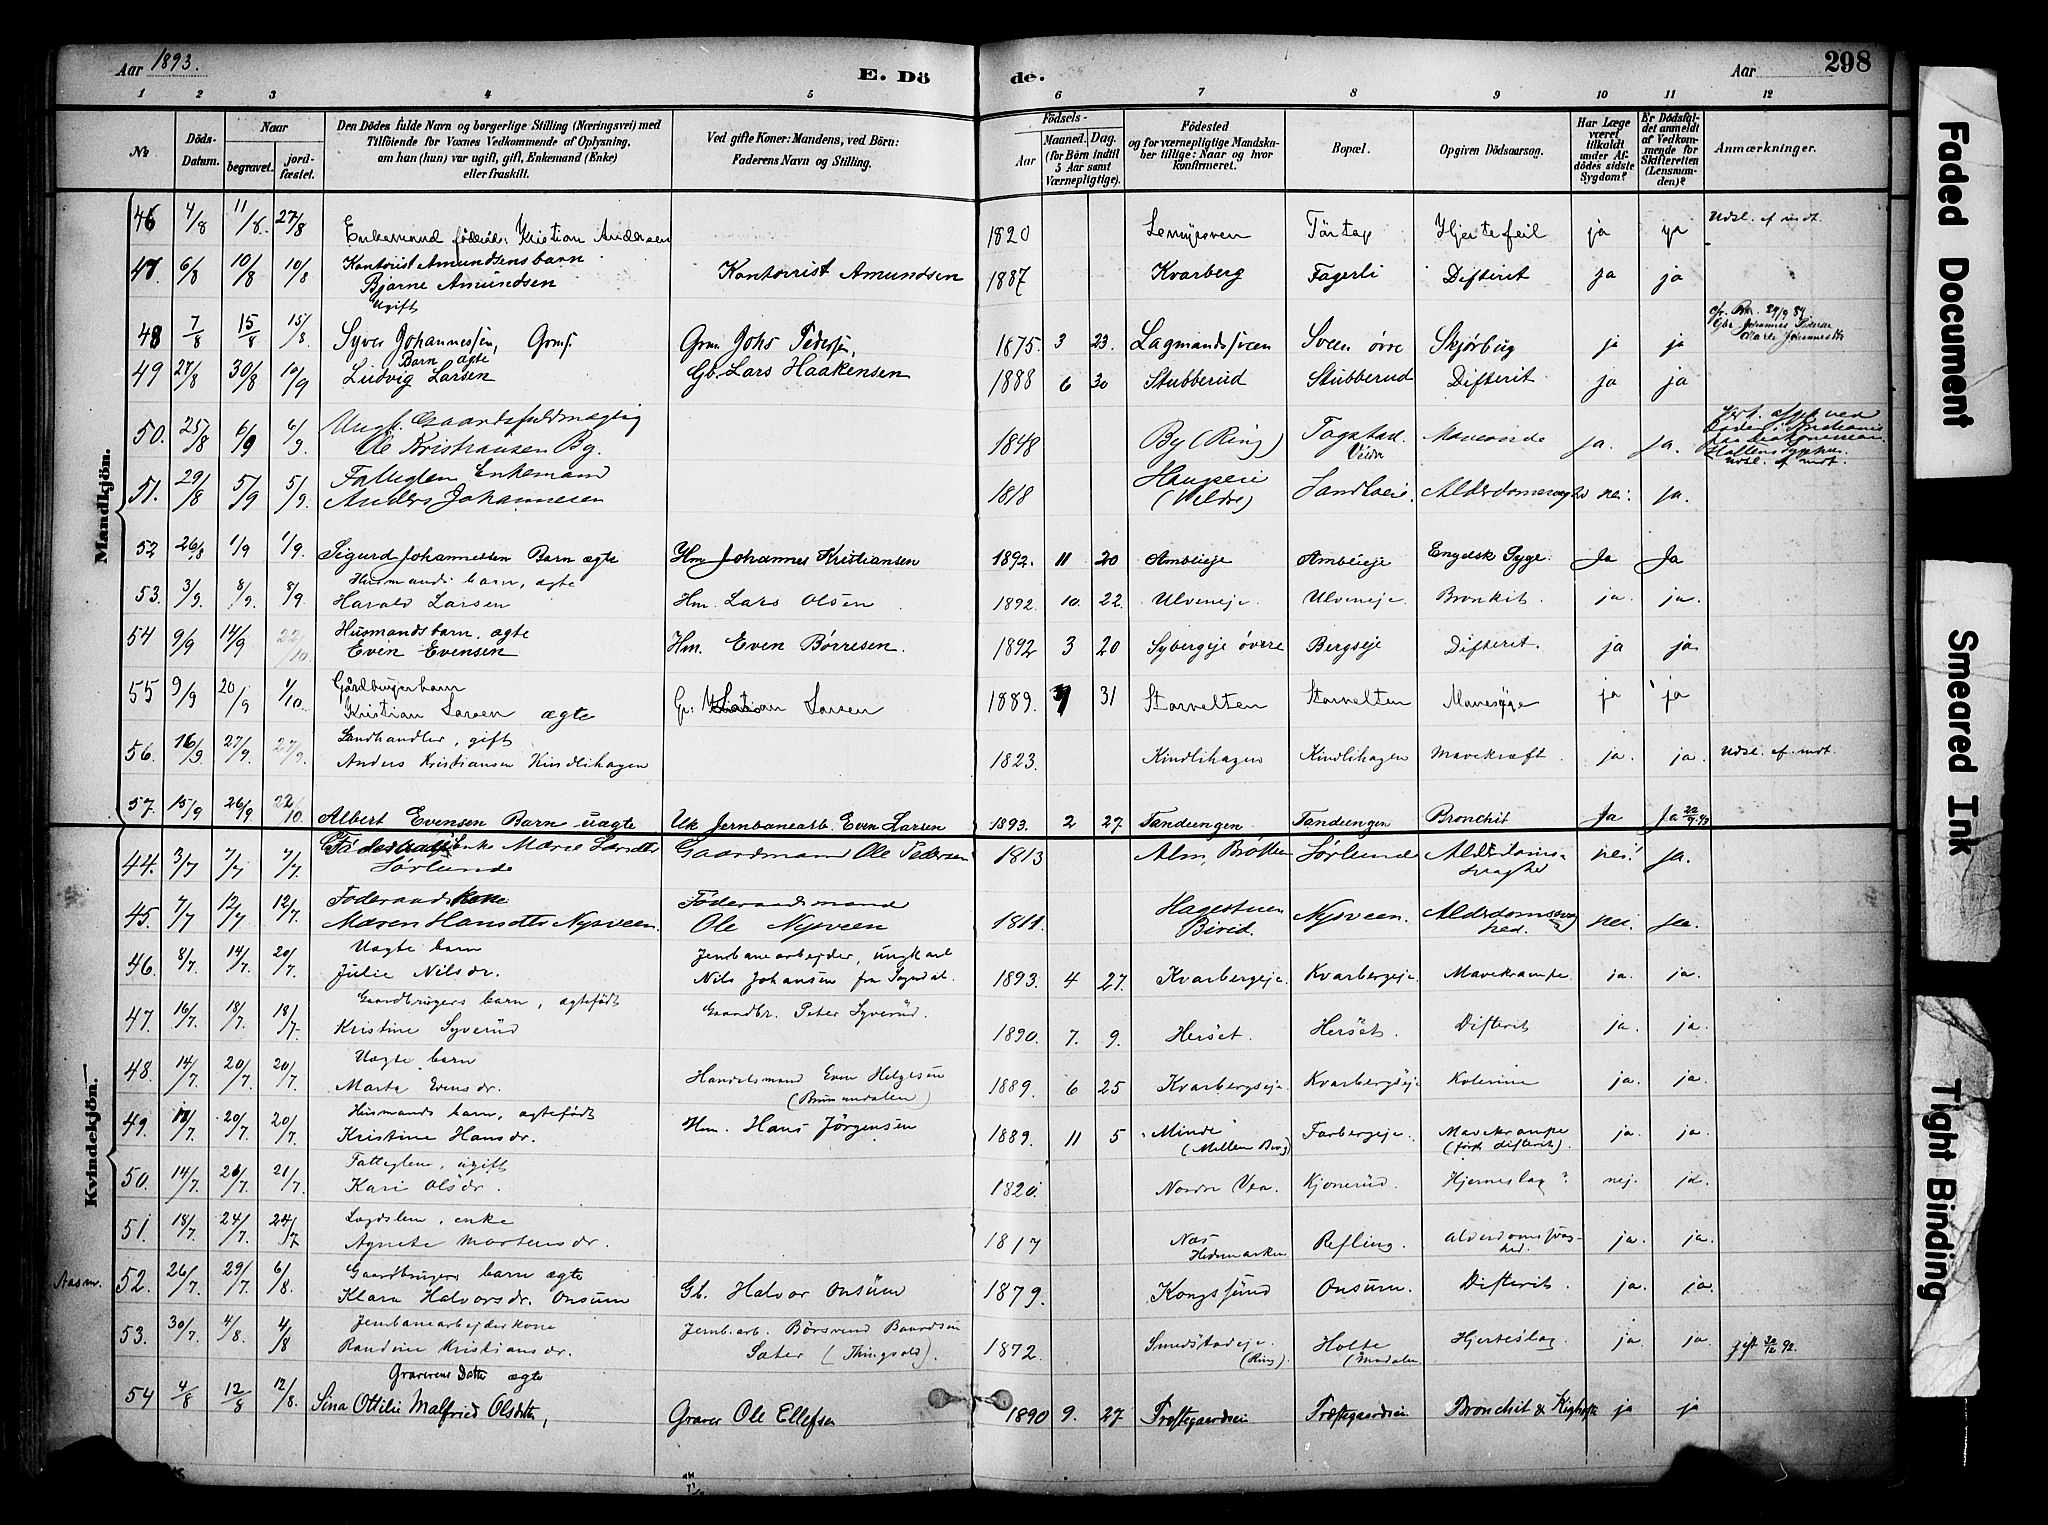 Aar 1893.
E. Dö
de.
Aar
298
1 2 3 4 5 6 7 8 9 10 11 12
Nr.
Döds-Datum.
Naar
begravet.
jord-fæstet.
Den Dödes fulde Navn og borgerlige Stilling (Næringsvei) med
Tilföiende for Voxnes Vedkommende af Oplysning,
om han (hun) var ugift, gift, Enkemand (Enke)
eller fraskilt.
Ved gifte Koner: Mandens, ved Börn:
Faderens Navn og Stilling.
Födsels-
Aar
Maaned. Dag.
(for Börn indtil
5 Aar samt
Værnepligtige).
Födested
og for værnepligtige Mandska-
ber tillige: Naar og hvor
konfirmeret.
Bopæl.
Opgiven Dödsaarsag.
Har Læge
været
tilkaldt
under Af-
dödes sidste
Sygdom?
Er Dödsfal-
det anmeldt
af Vedkom-
mende for
Skifteretten
(Lensman-
den)?
Anmærkninger.
Mandkjön.
46 4/8 11/8. 27/8 Enkemand föderåd: Kristian Andersen 1820 Töntap Hjertefeil ja ja Udsl. af mdt.
47. 6/8 10/8 10/8 Kontorist Amundsens barn
Bjarne Amundsen Kontorrist Amundsen 1887 Kvarberg Fagerli Difterit ja ja
Ugift
48 7/8 15/8 15/8 Syver Johannessen, Grmf. Grm. Johs Pedersen, 1875. 3 23. Lagmandssveen Sveen övre Skjørbug ja ja
Barn ægte
49 27/8 30/8 10/9 Ludvig Larsen Gb. Lars Haakensen 1888 6 30 Stubberud Stubberud Difterit ja ja
50. 25/8 6/9 6/9 Ungk. Gaardsfuldmægtig
Ole Kristiansen By. 1848 By (Ring) ja. ja. udsl. af mdt.
51. 29/8 5/9 5/9 Fattiglem Enkemand
Anders Johannesen 1818 nei. ja.
52 26/8 1/9 1/9. Sigurd Johannesen Barn ægte Hm Johannes Kristiansen 1892. 11 20 Ambleie Ambleieje Engelsk Syge. Ja Ja
53. 3/9. 8/9. 8/9. Husmands barn, ægte
Harald Larsen Hm. Lars Olsen 1892. 10. 22. Ulveneje. Ulveneje. Bronkit. ja. ja.
54 9/9 14/9 22/10. Husmandsbarn, ægte
Even Evensen Hm. Even Børresen. 1892 3 20 Sybergeje övre Bergseje Difterit. ja ja
55 9/9 20/9 1/10. Gårdbruger barn
Kristian Larsen ægte Larsen 1889. 31 Storvelten Storvelten Mavesyge ja ja
56. 16/9 27/9. 27/9. Landhandler, gift
Anders Kristiansen Kindlihagen 1823. Kindlihagen Kindlihagen Mavekræft ja. ja. Udsl. af mdt.
57. 15/9 26/9 22/10. Albert Evensen Barn uægte Uk Jernbanearb. Even Larsen 1893. 2 27. Tandeengen Tandeengen Bronchit Ja Ja 22/9 93
Kvindekjön.
44. 3/7 7/7 7/7. Enke Marie Larsdtr
Sørlunde Gaardmand Ole Pedersen 1813 Alm, Brøttum Sørlunde Alderdoms-
svaghed nei! ja.
45. 7/7 12/7 12/7. Föderaadskone
Maren Hansdtr Nysveen. Föderaadsmand
Ole Nysveen 1811. Hagestuen
Birid. Nysveen. Alderdomssvag
hed. nei. ja.
46. 8/7. 14/7. 20/7. Uægte barn
Julie Nilsdr. Jernbanearbejder, ungkarl
Nils Johansen fra Sogndal. 1893. 4 27. Kvarbergeje. Kvarbergeje. Mavekrampe ja. ja.
47. 16/7. 18/7. 18/7. Gaardbrugers barn, ægtefödt
Kristine Syverud Gaardbr. Peter Syverud. 1890. 7. 9. Hersöt. Hersöt. Difterit ja. ja.
48. 14/7. 20/7. 20/7. Uægte barn
Marta Evensdr. Handelsmand Even Helgesen
(Brumundalen) 1889. 6 25 Kvarbergseje. Kvarbergseje Kolerine ja. ja.
49. 17/7. 20/7. 20/7. Husmands barn, ægtefödt
Kristine Hansdr. Hm. Hans Jörgensen 1889. 11 5 "Minde"
Farbergeje. Mavekrampe
(först difterit). ja. ja.
50. 14/7. 20/7. 21/7. Fattiglem, ugift
Kari Olsdr. 1820. Nordre Vea. Kjonerud. Hjerneslag? nej. ja.
51. 18/7. 24/7. 24/7 Lægdslem, enke
Agnete Mortensdr. 1817 Næs
Hedemarken Refling. Alderdomssvag-
hed. ja. ja.
Aasm. 52. 26/7. 29/7. 6/8 Gaardbrugers barn ægte
Klara Halvorsdr. Onsum Gb. Halvor Onsum 1879. Kongssund Onsum. Difterit. ja. ja.
53. 30/7. 4/8. 4/8 Jernbanearbejderkone
Randine Kristiansdr. Jernb.arb. Börsvend Baardsen
Sæter 1872. Smedstadeje.
(Ring). Holte Hjerteslag. ja. ja gift 30/12 92.
Graverens Datter ægte
54 4/8 12/8 12/8. Sina Ottilie Malfried Olsdtr, Graver Ole Ellefsen 1890 9. 27. Præstegaardseie Præstegaardseie Bronchit & Kighoste ja ja
Faded Document
Smeared Ink
Tight Binding